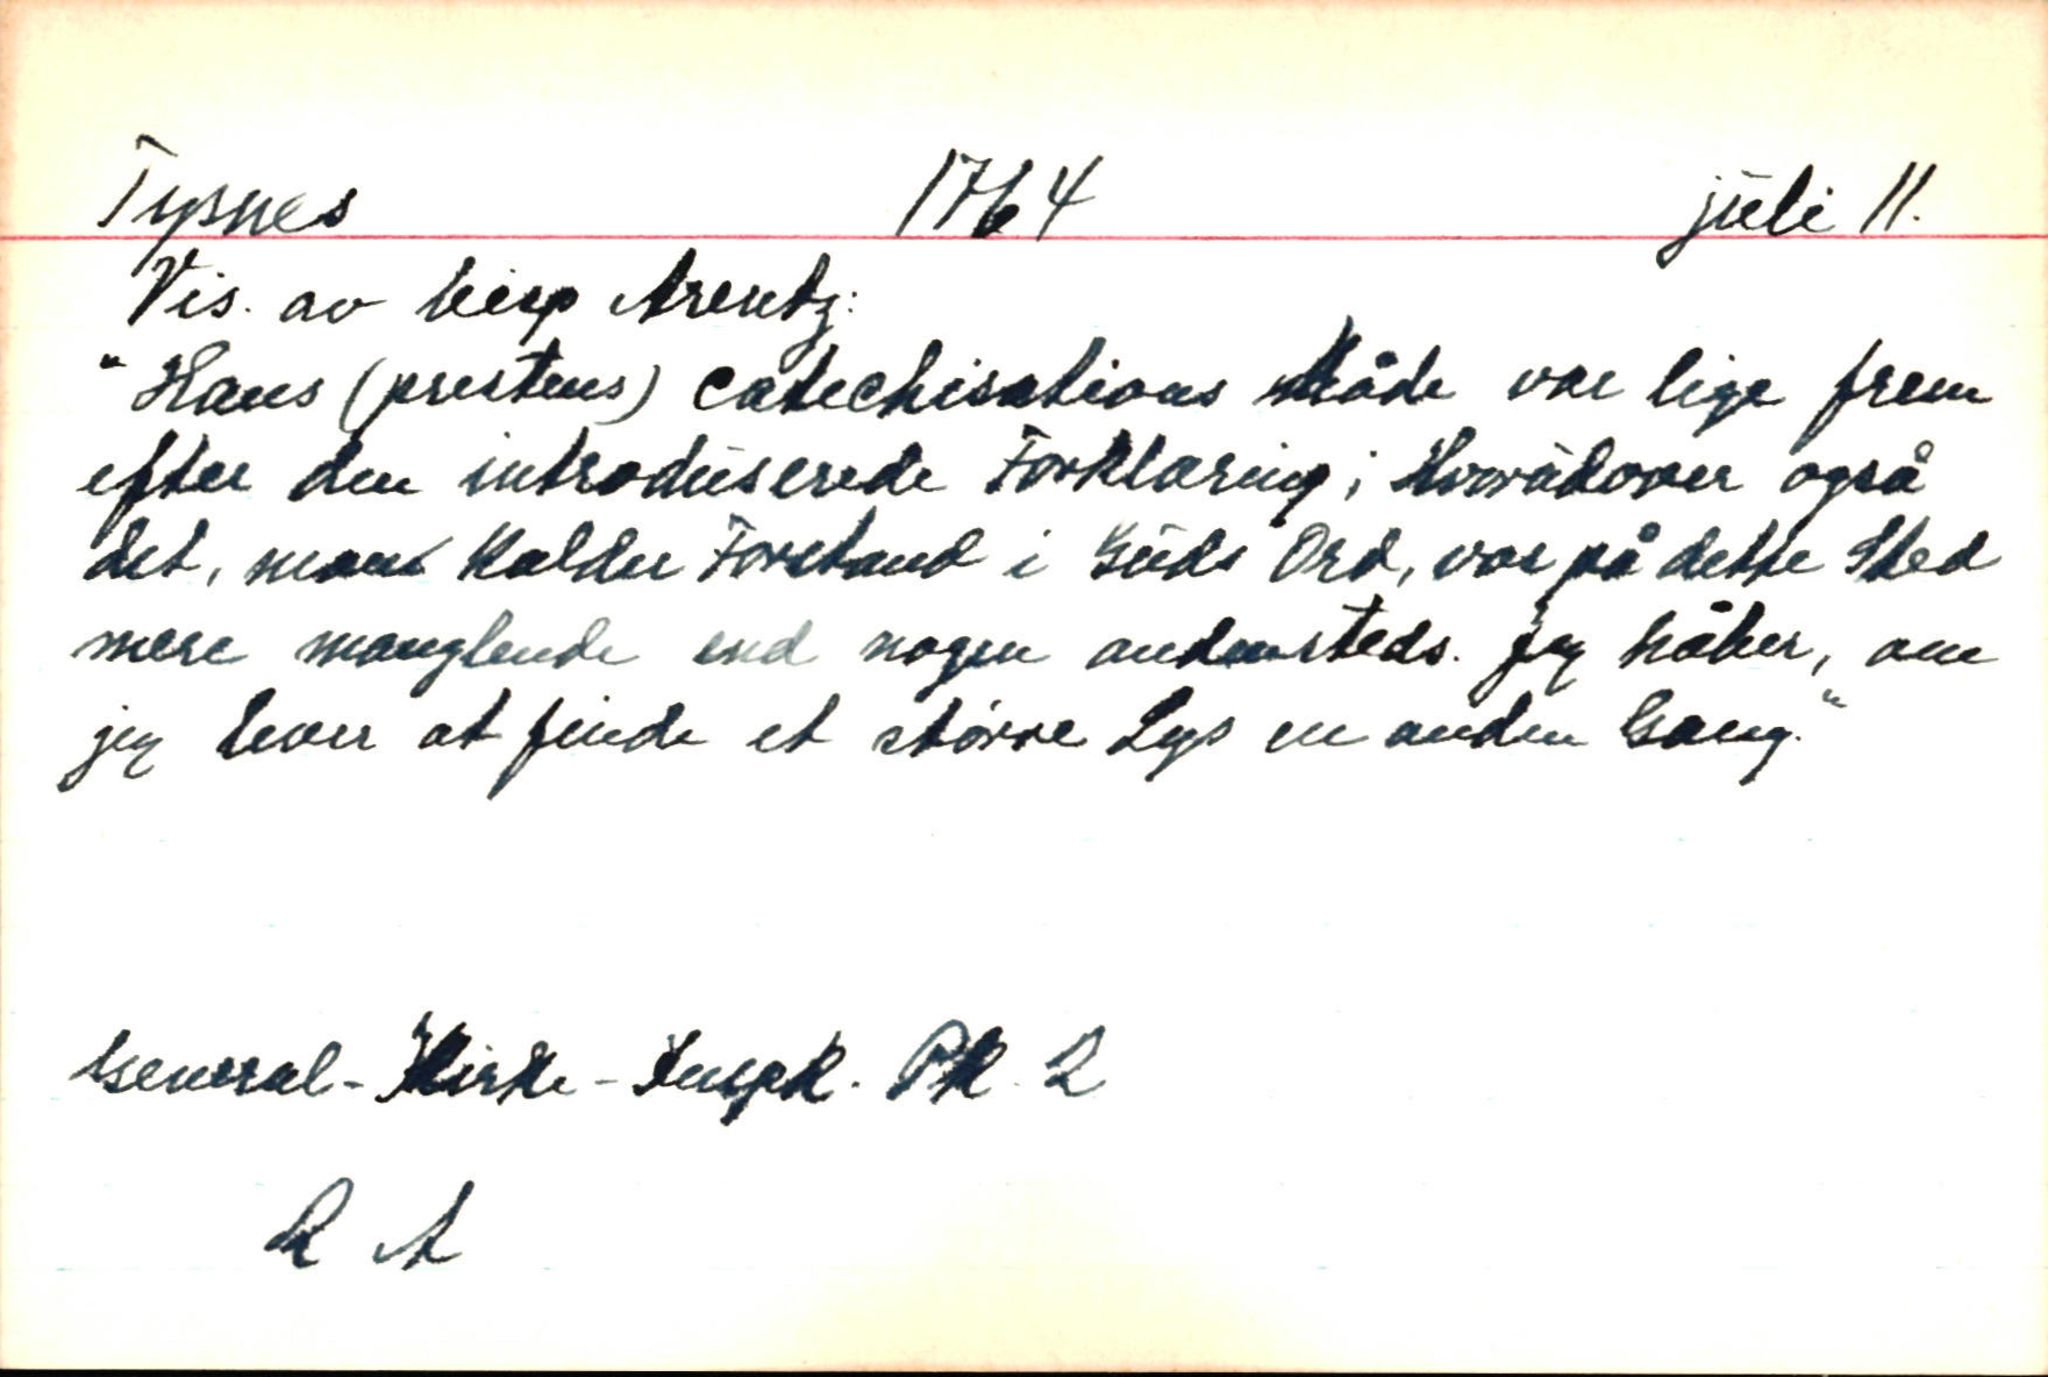 Tysnes 1764 juli 11.
Vis. av bisp Arentz:
"Hans (prestens) Catechisations Måde var lige frem
efter den introduserede Forklaring; Hvorudover også
det, man kalder Forstand i Guds Ord, var på dette Sted
mere manglende end nogen andensteds. Jeg håber, om
jeg lever at finde et større Lys en anden Gang."
General-Kirke-Inspk. Pk. 2
R A